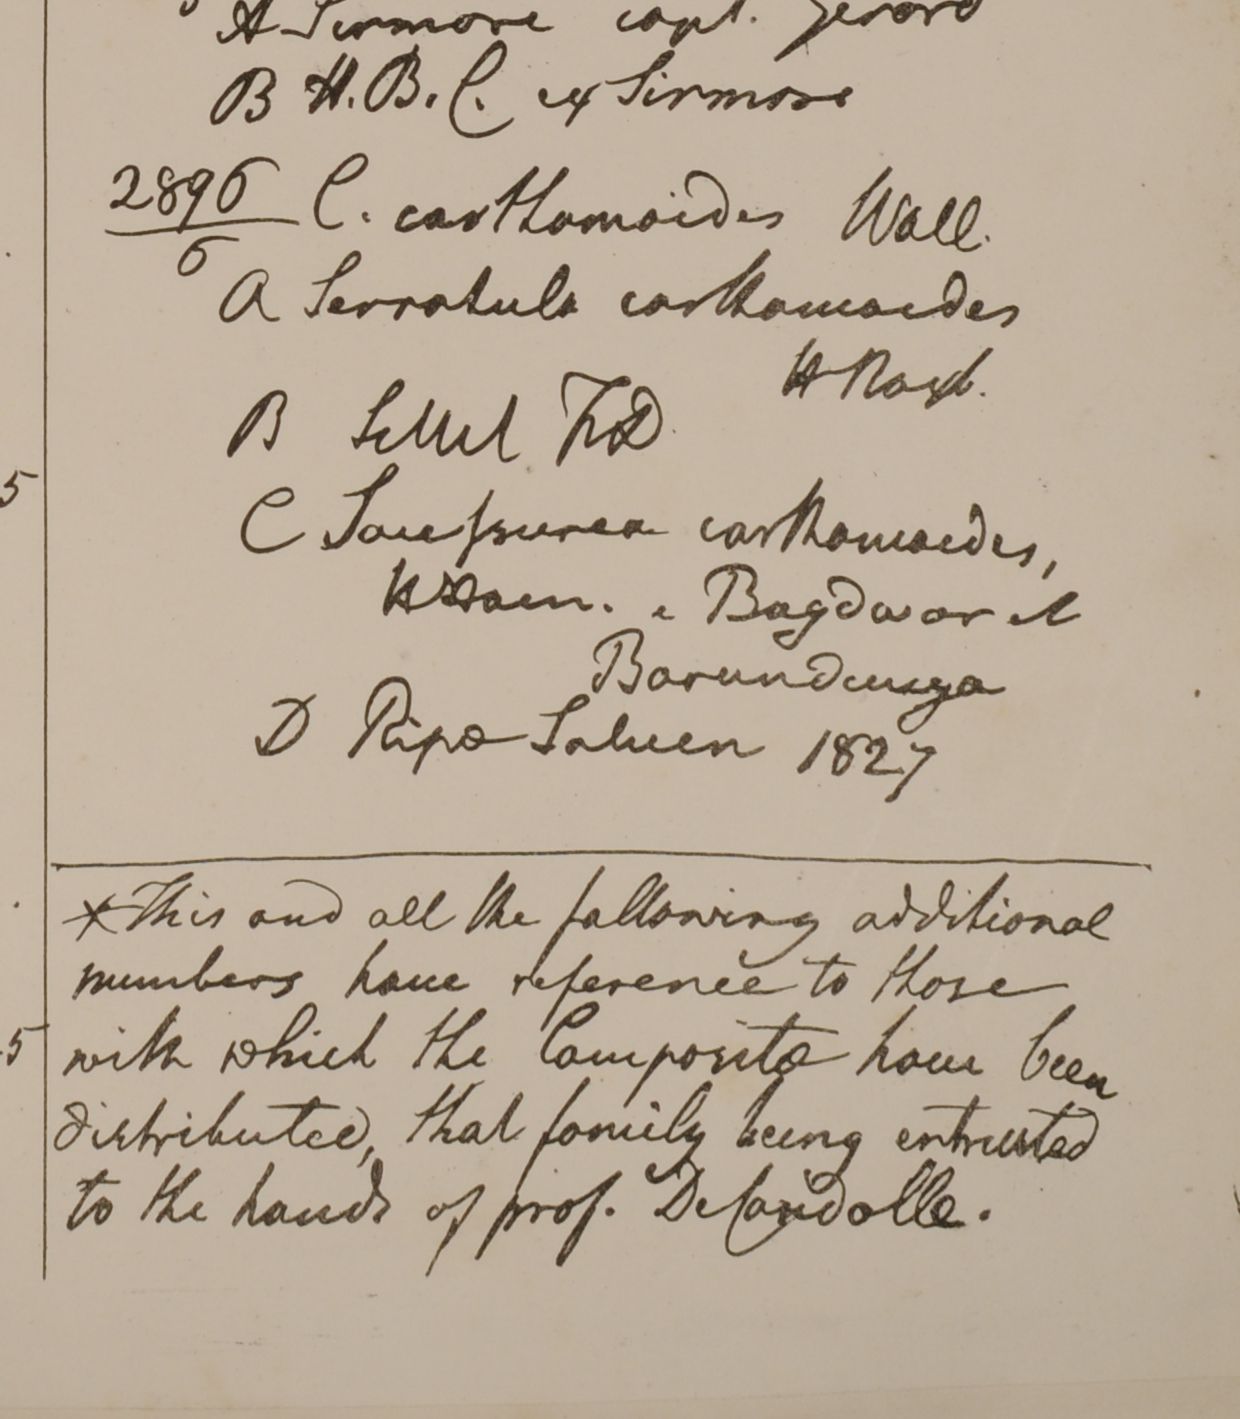 A Sirmore capt. Gerard
B H.B.C. ex Sirmore
2896/6 C. carthamoides Wall.
A Serratula carthamoides
H Roxb.
B Sillet FD
C Saussurea carthamoides,
H Ham. e Bagdwar et
Barundwnga
D Ripa Saluen 1827
5
*This and all the following additional
numbers have reference to those
with which the Compositæ have been
distributed, that family being entrusted
to the hands of prof. DeCandolle.
5